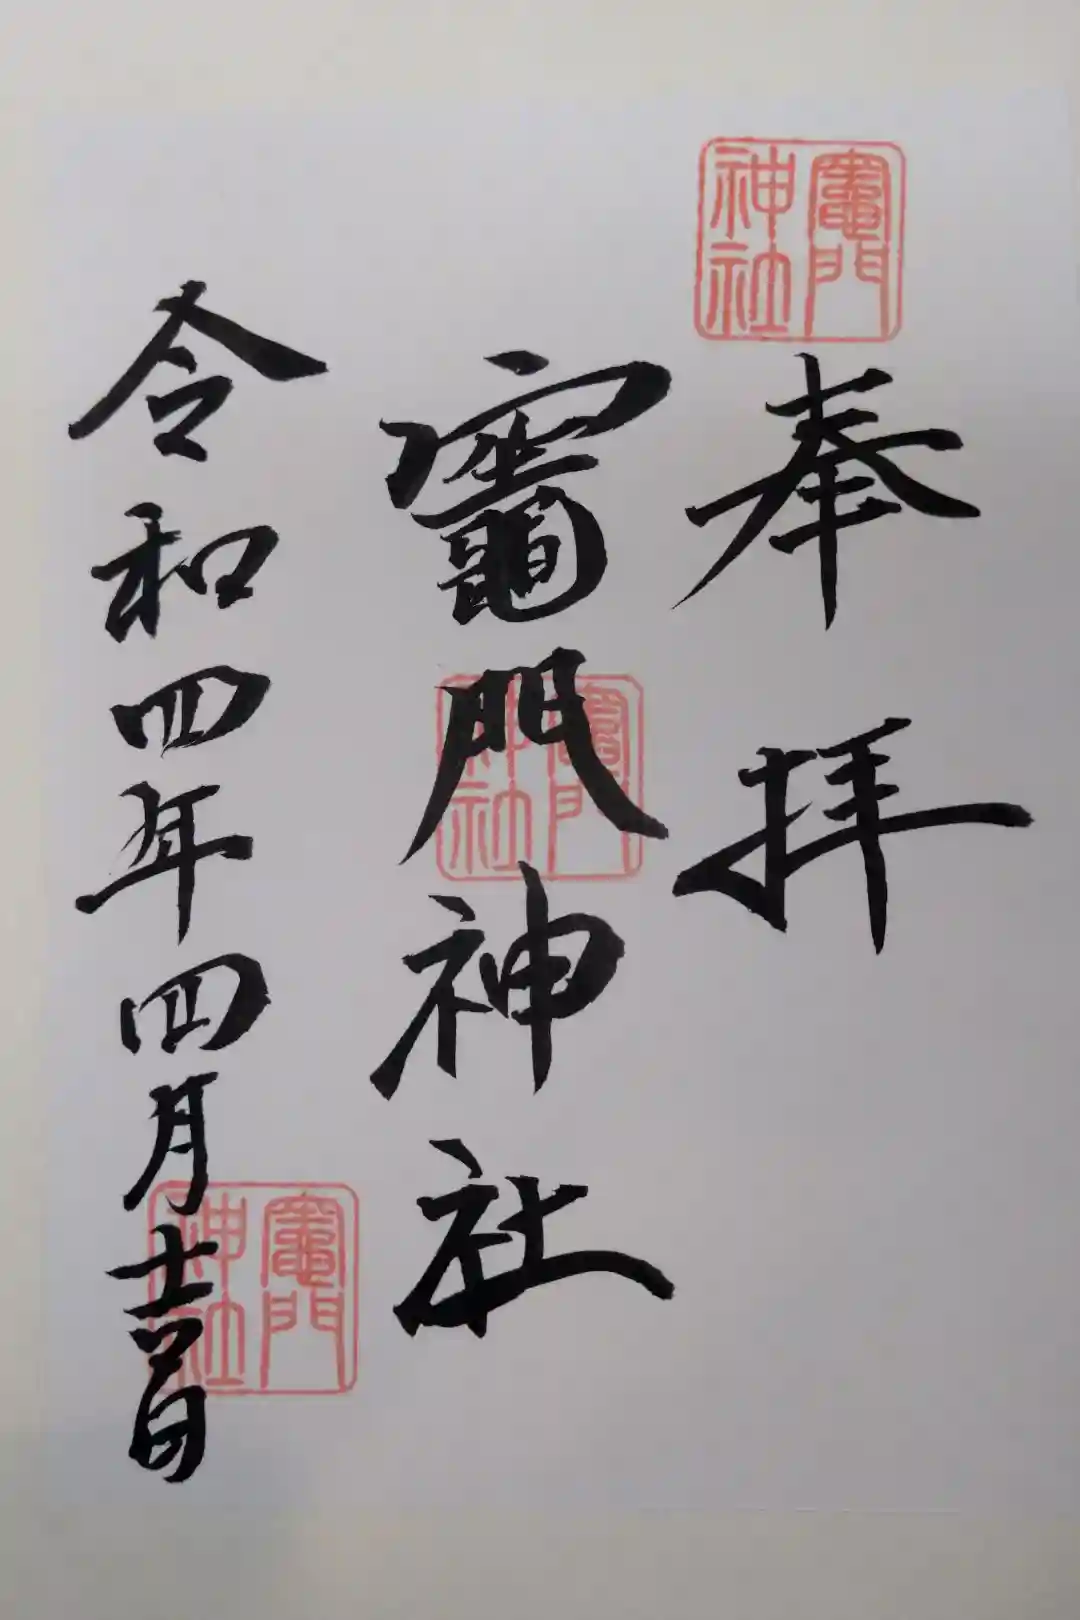 奉拝
竈門神社
令和四年四月十 日
竈門
神社
竈門
神社
竈門
神社